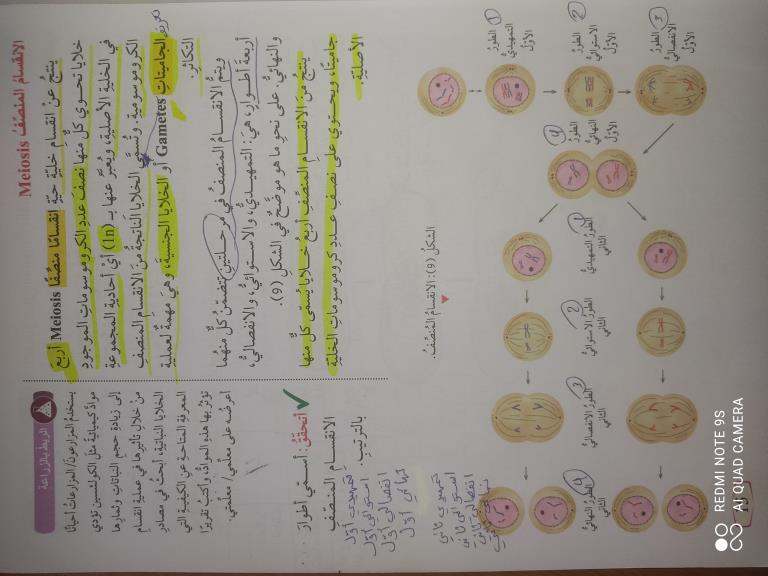 الانقسامُ المنصّفُ Meiosis
ينتجُ عنْ انقسامِ خليّةٍ حيةٍ انقسامًا منصّفًا Meiosis أربعَ
خلايا تحتوي كلٌّ منها نصفَ عددِ الكروموسوماتِ الموجودِ
في الخليّةِ الأصليّةِ، ويُعبّرُ عنها بـ (1n) أيْ أحاديةِ المجموعةِ
الكروموسوميةِ. وتُسمّى الخلايا الناتجةُ منَ الانقسامِ المنصفِ
الجاميتات Gametes أو الخلايا الجنسيةَ، وهيَ مهمةٌ لعمليةِ
التكاثرِ.
ويتمُّ الانقسامُ المنصفُ في مرحلتينِ تتضمنُ كلٌّ منهُما
أربعةَ أطوارٍ، هيَ: التمهيديُّ، والاستوائيُّ، والانفصاليُّ،
والنهائيُّ. على نحوِ ما هو موضّحٌ في الشكلِ (9).
ينتجُ منَ الانقسامِ المنصّفِ أربعُ خلايا يُسمّى كلٌّ منها
جاميتًا، ويحتوي على نصفِ عددِ كروموسوماتِ الخليّةِ
الأصليّةِ.
الربطُ بالزراعةِ
يستخدمُ المزارعونَ/ المزارعاتُ أحيانًا
موادَّ كيميائيةً مثلَ الكولشسين تؤدي
إلى زيادةِ حجمِ النباتاتِ وثمارِها
منْ خلالِ تأثيرِها في عمليةِ انقسامِ
الخلايا النباتيةِ، أبحثُ في مصادرِ
المعرفةِ المتاحةِ عنِ الكيفيةِ التي
تؤثرُ بها هذهِ الموادُّ، وأكتبُ تقريرًا
أعرضُه على معلّمي/ معلّمتي.
أتحقّقُ: أسمّي أطوارَ
الانقسامِ المنصفِ
بالترتيبِ.
تمهيدي أول
استوائي أول
انفصالي أول
نهائي أول
تمهيدي ثاني
استوائي ثاني
انفصالي ثاني
الشكلُ (9): الانقسامُ المُنصّفُ.
1 الطورُ التمهيديُّ الأوّلُ
2 الطورُ الاستوائيُّ الأوّلُ
3 الطورُ الانفصاليُّ الأوّلُ
4 الطورُ النهائيُّ الأوّلُ
1 الطورُ التمهيديُّ الثاني
2 الطورُ الاستوائيُّ الثاني
3 الطورُ الانفصاليُّ الثاني
4 الطورُ النهائيُّ الثاني
REDMI NOTE 9S
AI QUAD CAMERA